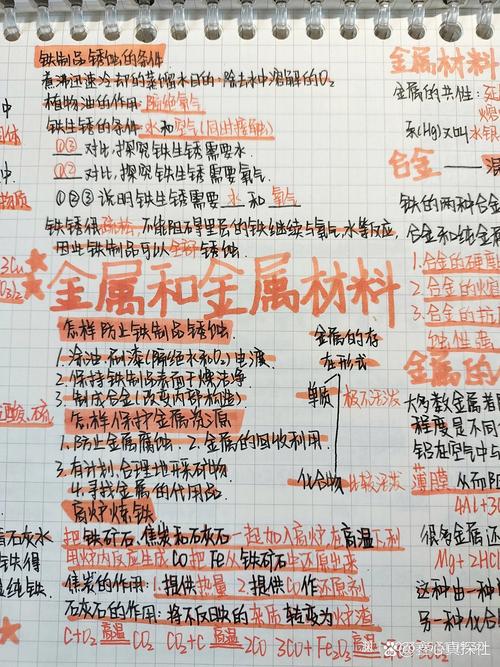 铁制品锈蚀的条件
煮沸迅速冷却的蒸馏水目的:除去水中溶解的O2
植物油的作用:隔绝氧气
铁生锈的条件:水和空气(同时接触)
①③对比,探究铁生锈需要水.
①②对比,探究铁生锈需要氧气.
①②③说明铁生锈需要 水 和 氧气
铁锈很疏松,不能阻碍里层的铁继续与氧气,水等反应,
因此铁制品可以全部锈蚀.
金属和金属材料
怎样防止铁制品锈蚀.
1.涂油、刷漆(隔绝水和O2)电镀
2.保持铁制品表面干燥洁净
3.制成合金(改变内部构造)
怎样保护金属资源
1.防止金属腐蚀. 2.金属的回收利用.
3.有计划,合理地开采矿物.
4.寻找金属的代用品
金属的存
在形式
单质 极不活泼
化合物 比较活泼
高炉炼铁
把铁矿石、焦炭和石灰石一起加入高炉,在高温下,利
用炉内反应生成CO把Fe从铁矿石中还原出来
焦炭的作用:1.提供热量 2.提供CO作还原剂
石灰石的作用:将
转变为炉渣
C+O2 高温 CO2 CO2+C 高温 2CO 3CO+Fe2O3 高温
金属材料
金属的共性:
汞(Hg)又叫水银
合金——
铁的两种合金
合金和纯金属
1.合金的硬度
2.合金的熔
3.合金的抗
蚀性
金属的
大多数金属
程度是不同
铝在空气中与
薄膜 从而阻
4Al+3O
很多金属还
Mg+2HC
这种由一种
另一种化合
3Cu
中
中
物质
酸、硫
石灰水
铁得
纯铁.